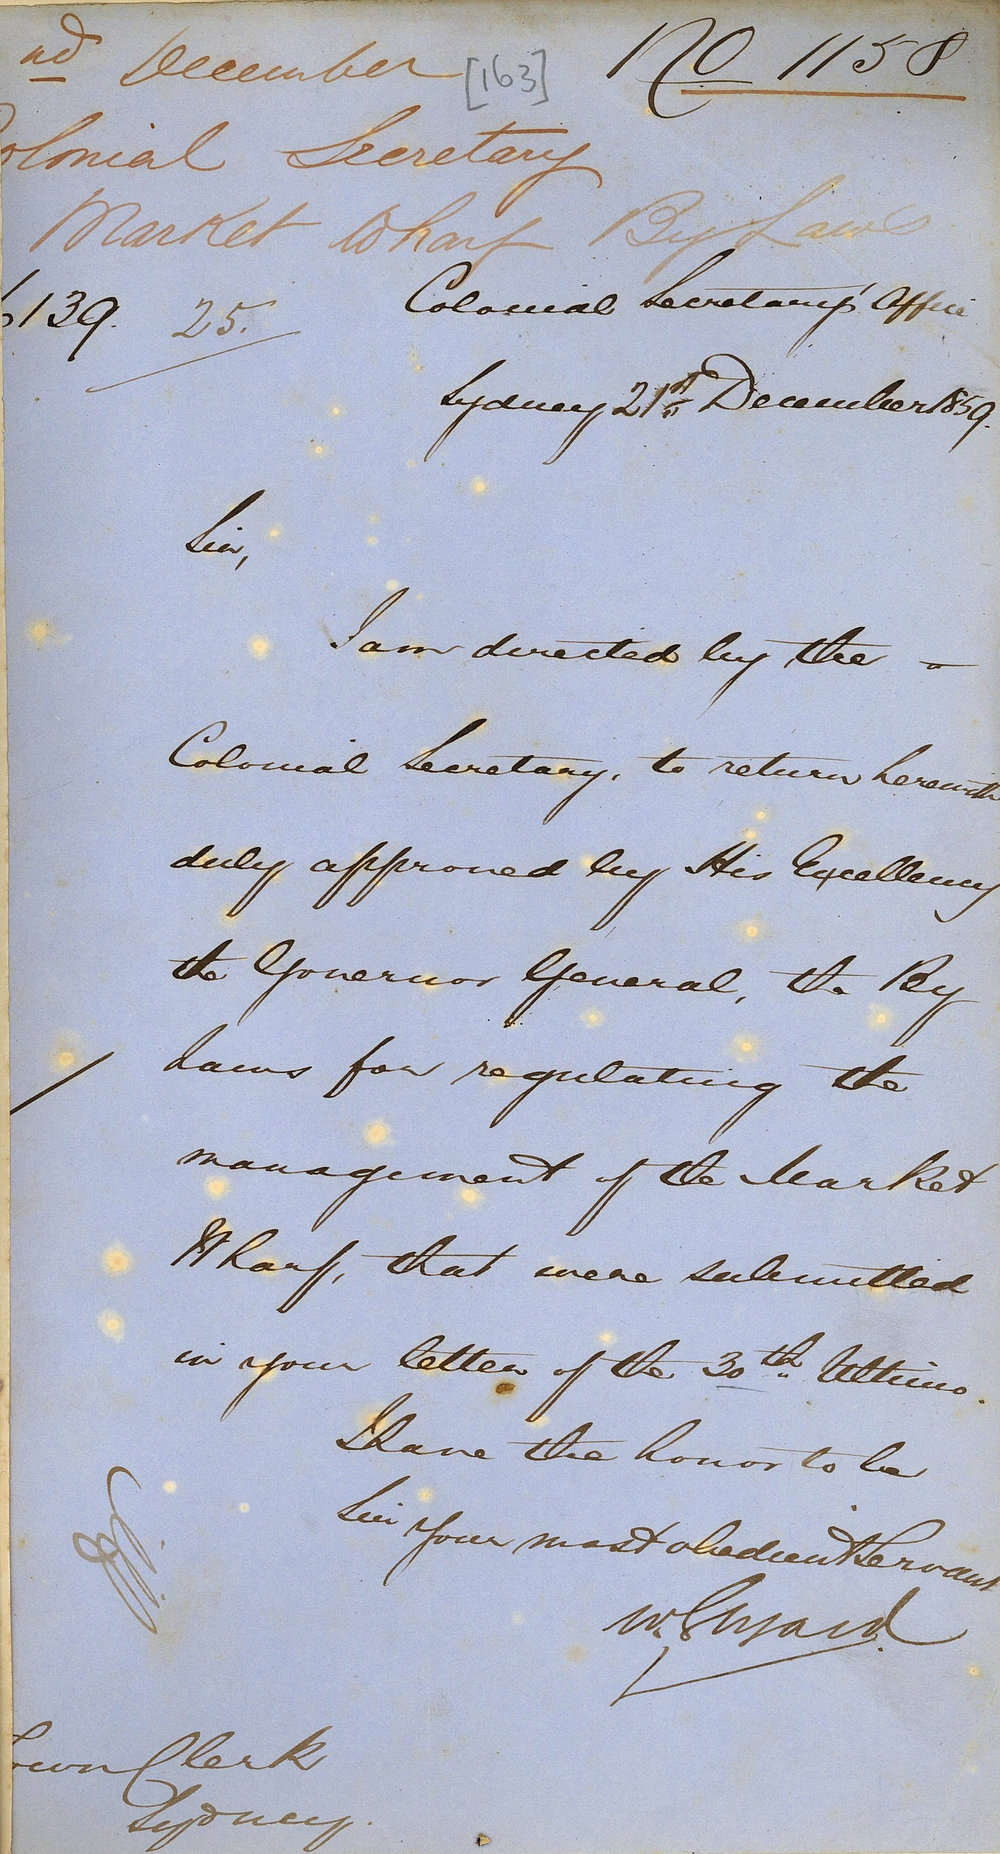 nd December [163] No 1158
Colonial Secretary
Market Wharf By Laws
139. 25.
Colonial Secretary's Office
Sydney 21st December 1859.
Sir,
I am directed by the
Colonial Secretary, to return herewith
duly approved by His Excellency
the Governor General, the By
Laws for regulating the
management of the Market
Wharf, that were submitted
in your letter of the 30th Ultimo.
I have the honor to be
Sir Your most obedient Servant
W. Elyard
Town Clerk
Sydney.